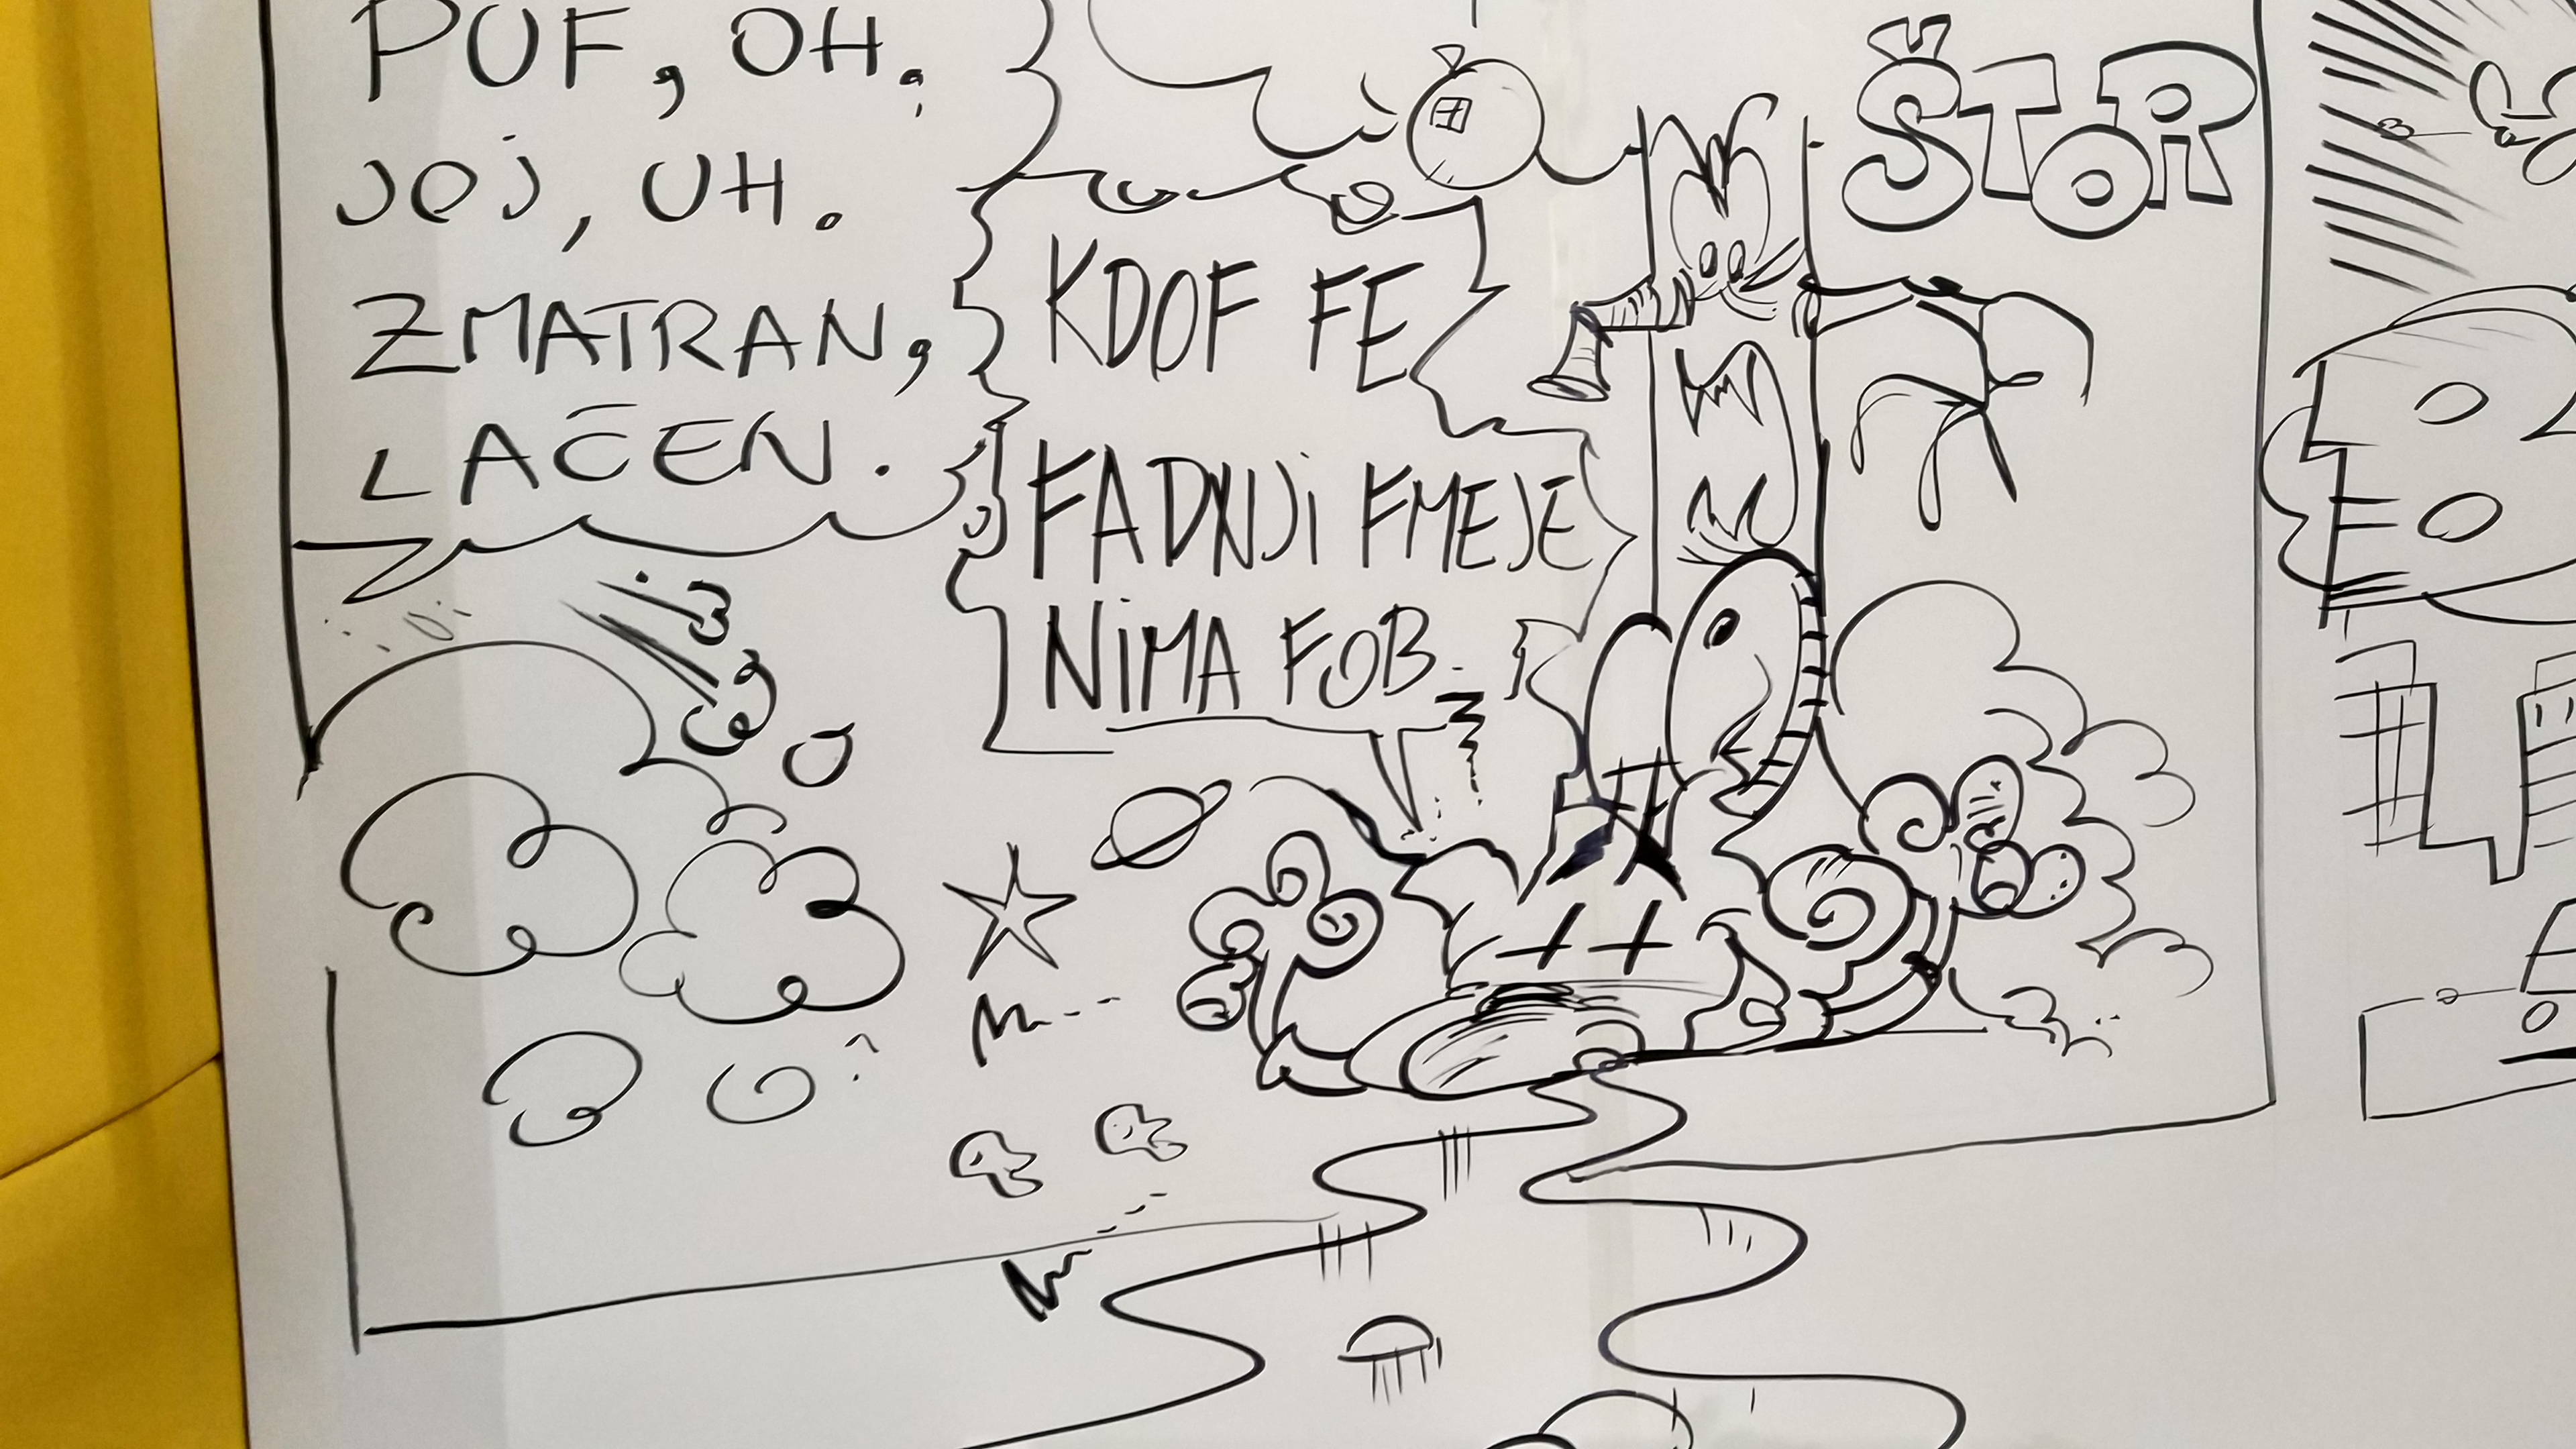 PUF, OH,
JOJ, UH.
ZMATRAN,
LAČEN.
KDOF FE
FADNJI FMEJE
NIMA FOB
ŠTOR